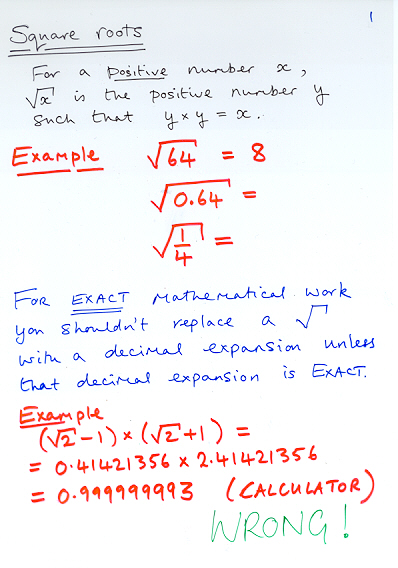 1
Square roots
For a positive number x,
√x is the positive number y
such that y × y = x.
Example √64 = 8
√0.64 =
√1/4 =
For EXACT mathematical work
you shouldn't replace a √
with a decimal expansion unless
that decimal expansion is EXACT.
Example
(√2 - 1) × (√2 + 1) =
= 0.41421356 × 2.41421356
= 0.999999993 (CALCULATOR)
WRONG!